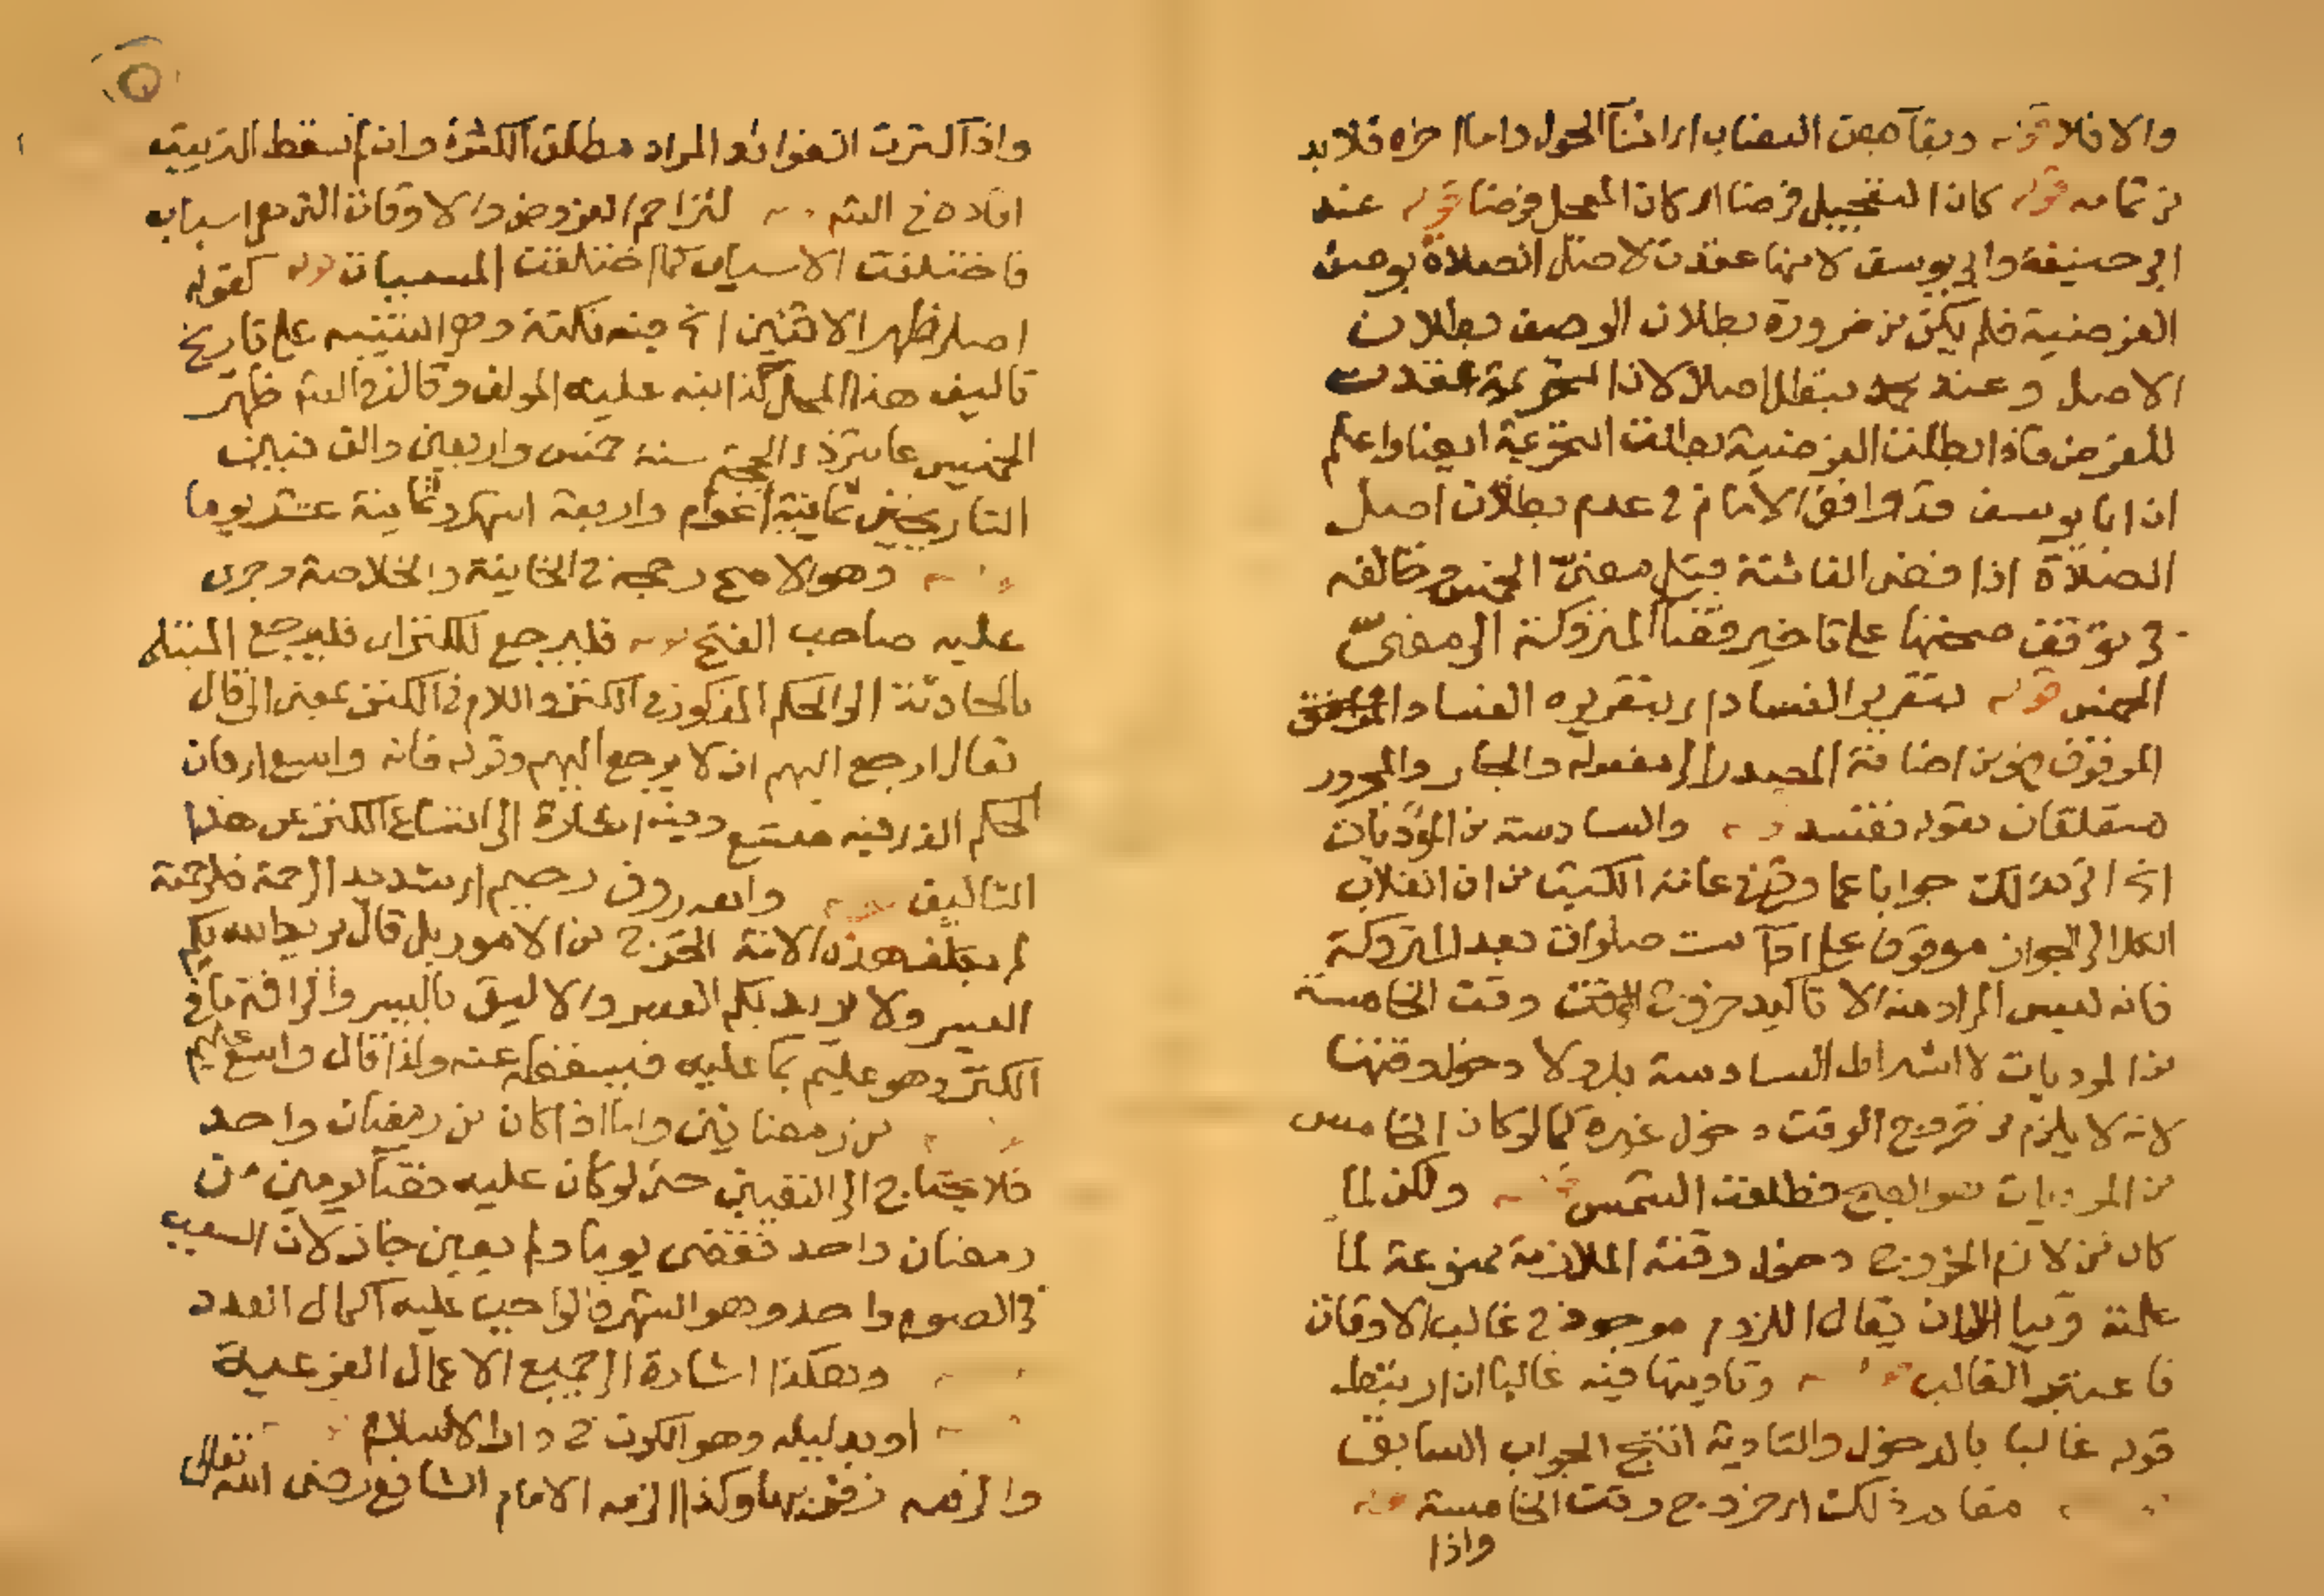 والا فلا قوله وبقاء بعض النصاب اى اثناء الحول واما اخره فلا بد
من تمامه قوله كان التعجيل فرضا اى كان المعجل فرضا قوله عند
ابى حنيفة وابى يوسف لانها عقدت لاصل الصلاة بوصف
الفرضية فلم يكن من ضرورة بطلان الوصف بطلان
الاصل وعند محمد يبطل اصلا لان التحريمة عقدت
للفرض فاذا بطلت الفرضية بطلت التحريمة ايضا واعلم
ان ابا يوسف قد وافق الامام فى عدم بطلان اصل
الصلاة اذا قضى الفائتة قبل مضىّ الخمس وخالفه
فى توقف صحتها على تاخير قضاء المتروكة الى مضىّ
الخمس قوله بتقرير الفساد اى بتقريره الفساد
الموقوف فهو من اضافة المصدر الى مفعوله والجار والمجرور
متعلقان بقوله تفسد قوله والسادسة من المؤديات
انما اتى بذلك جوابا عما وقع فى عامة الكتب من ان انقلاب
الكل الى الجواز موقوف على اداء ست صلوات بعد المتروكة
فانه ليس المراد منه الا تاكيد خروج وقت الخامسة
من الموديات لا اشتراط السادسة بل ولا دخول وقتها
لانه لا يلزم من خروج الوقت دخول غيره كما لو كان الخامس
من الموديات هو الصبح فطلعت الشمس قوله ولكن لما
كان من لازم الخروج دخول وقته الملازمة ممنوعة لما
علمته قريبا الا ان يقال اللزوم موجود فى غالب الاوقات
فاعتبر الغالب قوله وتاديتها فيه غالبا ان اريتها
قوله غالبا بالدخول والتادية انتج الجواب السابق
مفاد ذلك اى خروج وقت الخامسة قوله
واذا
واذا كثرت الفوائد المراد مطلق الكثرة وان لم تسقط الترتيب
افاده فى النهر قوله لتزاحم الفروض والاوقات التى هى اسباب
فاختلفت الاسباب كما اختلفت المسببات قوله كقوله
اصلى ظهر الاثنين الخ فيه نكتة وهى التنبيه على تاريخ
تاليف هذا المحل كذا نبه عليه المولف وقال فى النهر ظهر
الخميس عاشر ذى الحجة سنة خمس واربعين والف فبين
التاريخين ثمانية اعوام واربعة اشهر وثمانية عشر يوما
قوله وهو الاصح رجحه فى الخانية والخلاصة وجرى
عليه صاحب الفتح قوله فليرجع للكنز اى فليرجع المبتلى
بالحادثة الى الحكم المذكور فى الكنز واللام فى الكنز بمعنى الى قال
تعالى ارجع اليهم ان لا يرجع اليهم وقوله فانه واسع اى فان
الحكم الذى فيه متسع وفيه اشارة الى اتساع الكنز عن هذا
التاليف قوله والله رووف رحيم اى شديد الرحمة فلرحمة
لم يكلف هذه الامة الحرج من الامور بل قال يريد الله بكم
اليسر ولا يريد بكم العسر والاليق باليسر والرافة ما فى
الكنز وهو عليم بما عليه فيسقطه عنه ولذا قال واسع عليم
قوله من رمضانين واما اذا كان من رمضان واحد
فلا يحتاج الى التعيين حتى لو كان عليه قضاء يومين من
رمضان واحد فقضى يوما ولم يعين جاز لان السبب
فى الصوم واحد وهو الشهر فالواجب عليه اكمال العدد
قوله وهكذا اشارة الى جميع الاعمال الفرعية
قوله او بدليله وهو الكون فى دار الاسلام قوله
والزمه زفر بها وكذا الزمه الامام الشافعى رضى الله تعالى